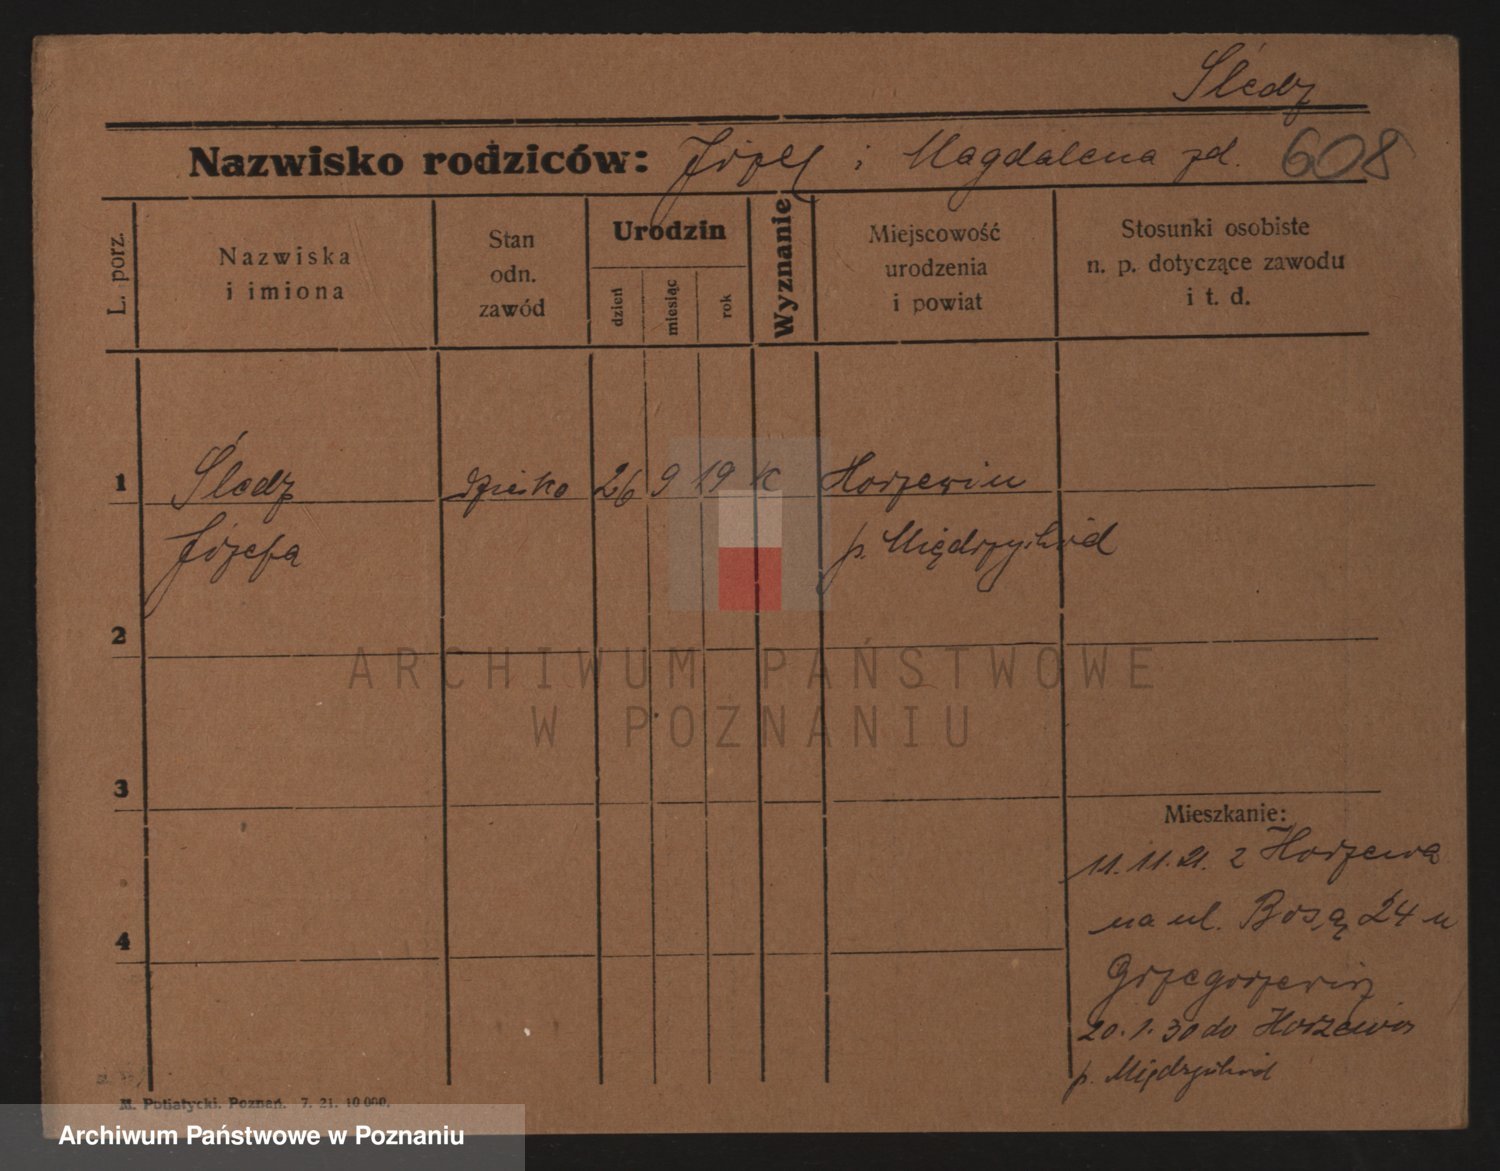 Śledz
Nazwisko rodziców: Józef i Magdalena zd. 608
L. porz.
Nazwiska
i imiona
Stan
odn.
zawód
Urodzin
dzień
miesiąc
rok
Wyznanie
Miejscowość
urodzenia
i powiat
Stosunki osobiste
n. p. dotyczące zawodu
i t. d.
1 Śledz dziecko 26 9 19 K Horzewiu
Józefa p. Międzychód
2
3
4
Mieszkanie:
11.11.21. z Horzewa
na ul. Bosą 24 u
Grzegorzewicz
20.1.30 do Horzewa
p. Międzychód
M. Putiatycki. Poznań. 7. 21. 10 000.
ARCHIWUM PAŃSTWOWE
W POZNANIU
Archiwum Państwowe w Poznaniu